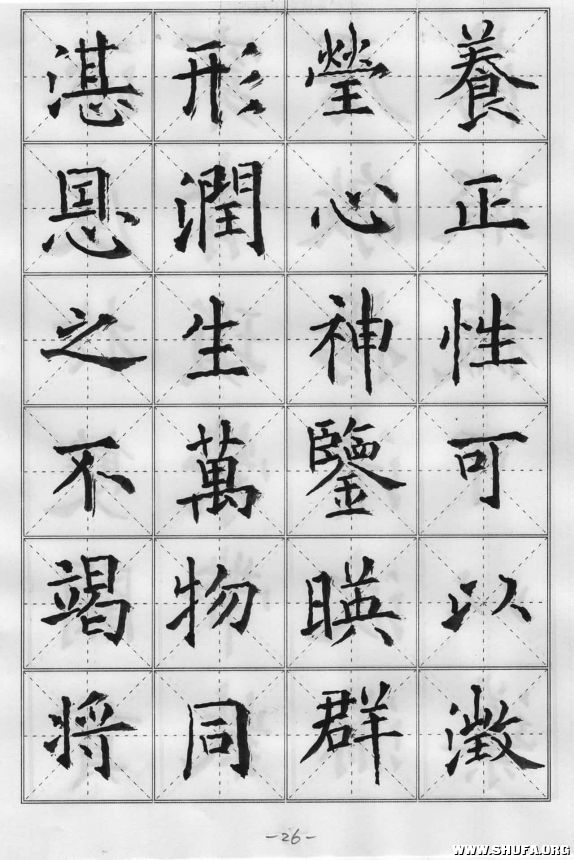 養正性可以澂
瑩心神鑒暎群
形潤生萬物同
湛恩之不竭将
-26-
WWW.SHUFA.ORG